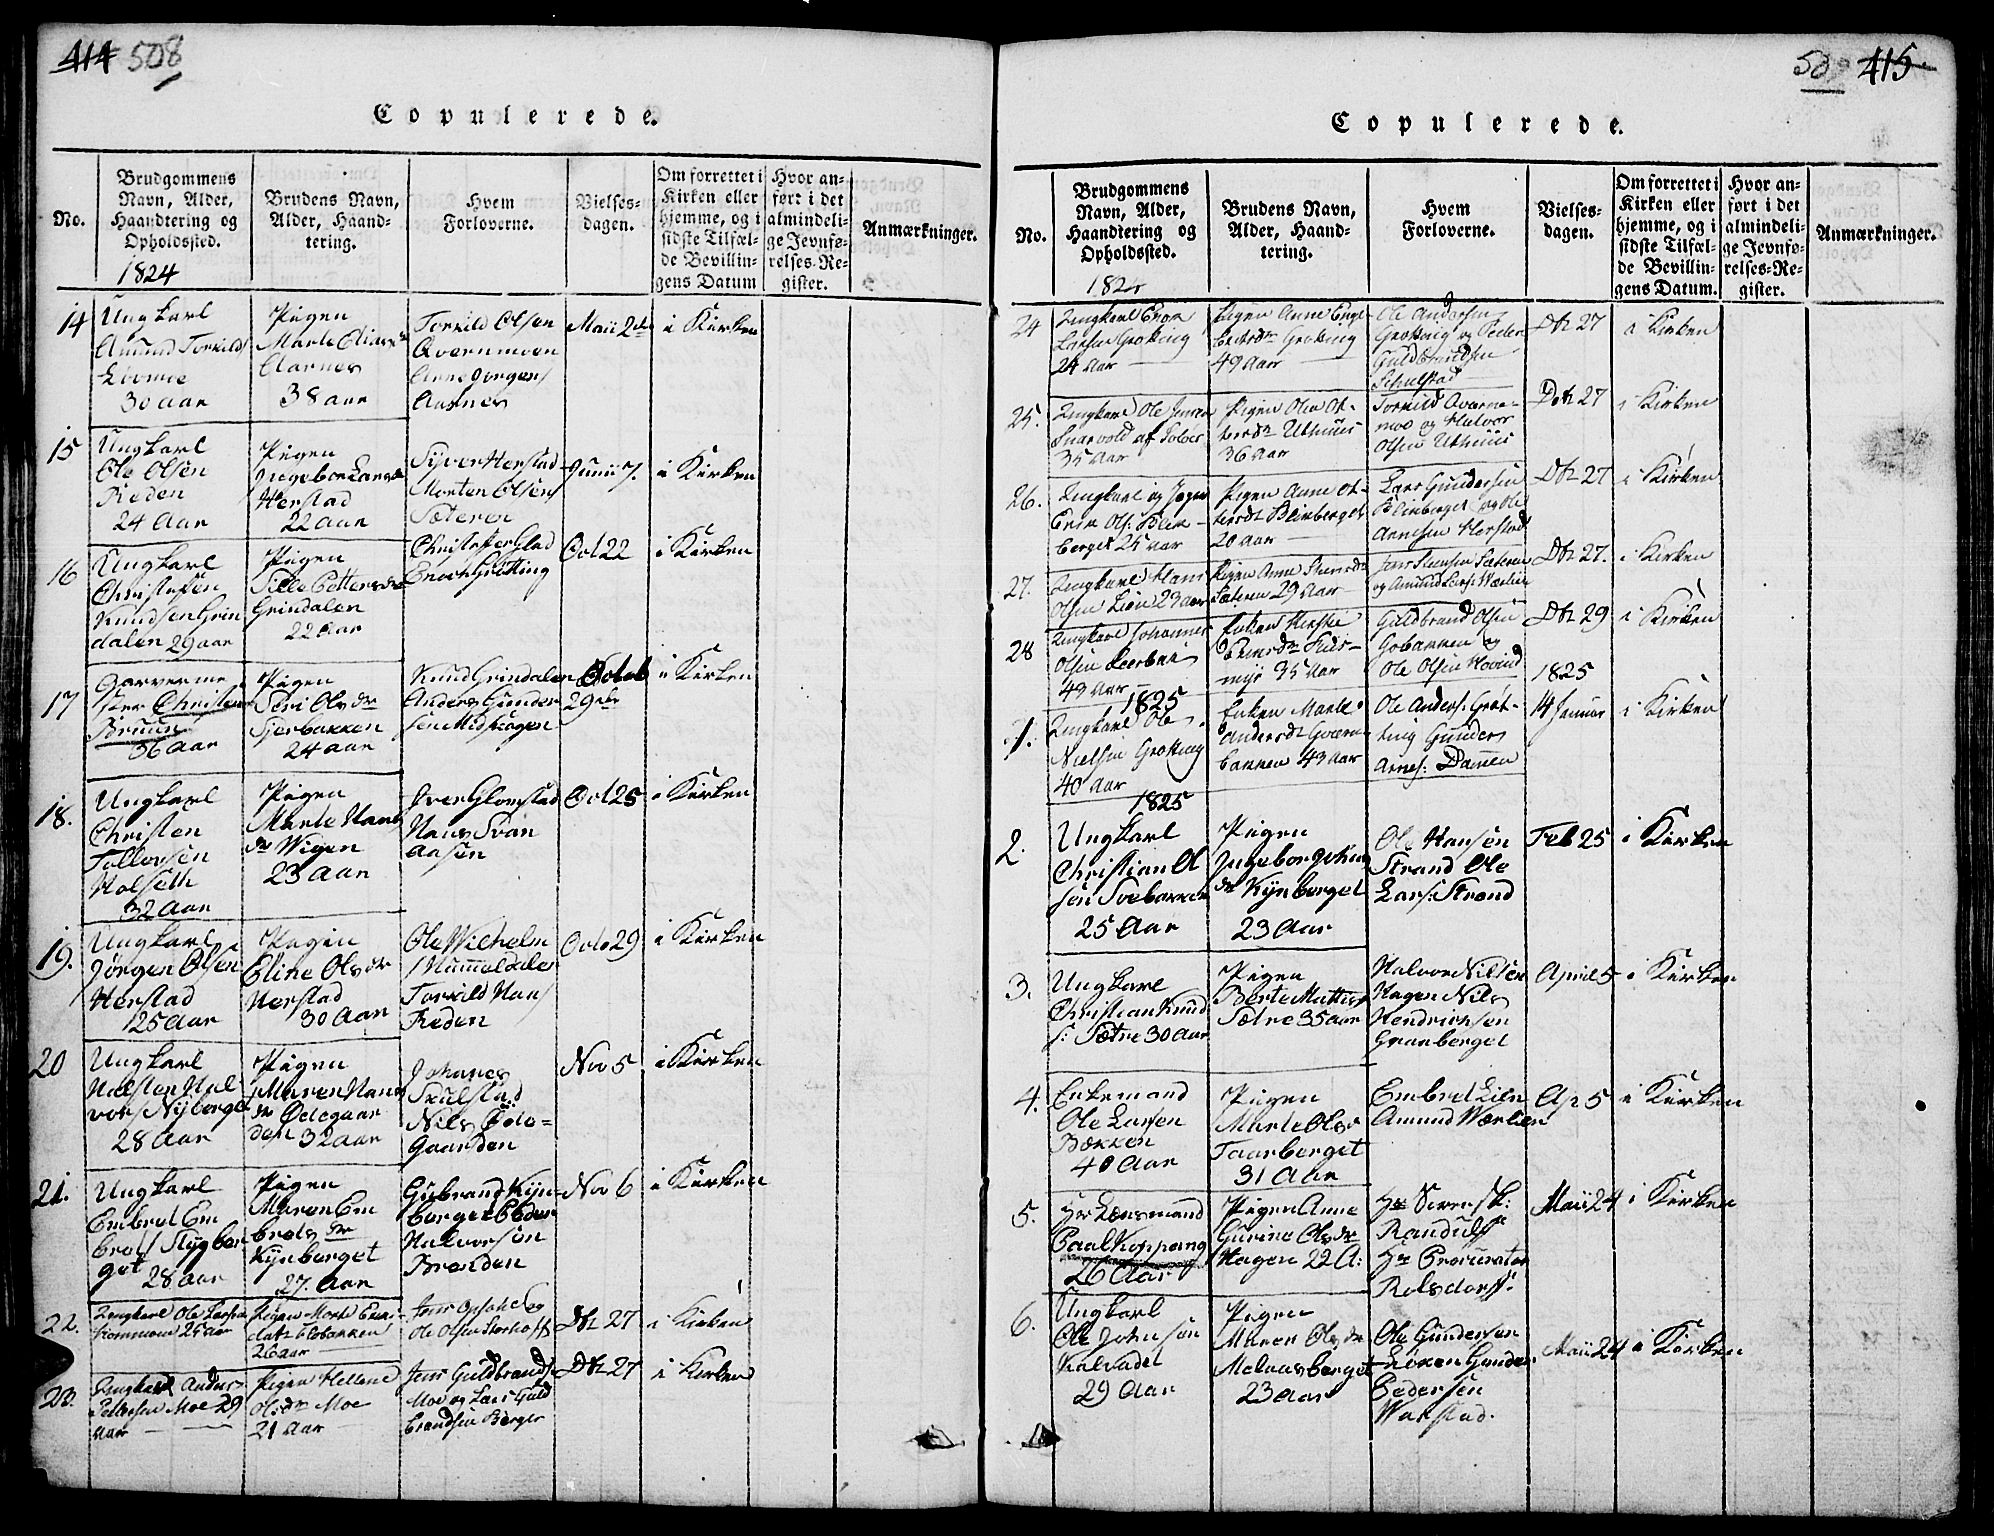 414 508
Copulerede.
No.
Brudgommens Navn, Alder, Haandtering og Opholdssted.
Brudens Navn, Alder, Haandtering.
Hvem Forloverne.
Vielsesdagen.
Om forrettet i Kirken eller hjemme, og i sidste Tilfælde Bevillingens Datum
Hvor anført i det almindelige Jevnførelses-Register.
Anmærkninger.
1824
14
Ungkarl
Amund Torkilds
Lovmoe
30 aar
Pigen
Marte Eliasd
Aarnes
38 aar
Torkild Olsen
Qvernmoen
Arne Jørgens
Aarnes
Maii 2d
i Kirken
15
Ungkarl
Ole Olsen
Reden
24 Aar
Pigen
Ingebor Larsd
Herstad
22 aar
Syver Herstad
Morten Olsen
Sæteren
Junii 7.
i Kirken
16
Ungkarl
Christofen
Knudsen Grin
dalen 29 aar
Pigen
Sille Pettersdr
Grindalen
22 Aar
Christoffer Glad
Enock Grötting
Oct 22
i Kirken
17
Garverme
ster Christen
Bruun
36 aar
Pigen
Siri Olsdr
Sjerbakken
24 aar
Knud Grindalen
Anders Gunder
sen Midskogen
Octob
29de
i Kirken
18.
Ungkarl
Christen
Tollovsen
Holseth
32 Aar
Pigen
Marte Hans
dr Wigen
23 Aar
Iver Glomstad
Hans Svön
aasen
Oct 25
i Kirken
19.
Ungkarl
Jörgen Olsen
Herstad
25 Aar
Pigen
Eline Olsdr
Herstad
30 Aar
Ole Wilhelm
Nummedaler
Torkild Hans
Reden
Octo 29
i Kirken
20
Ungkarl
Halsten Hal
vors Nyberget
28 Aar
Pigen
Maren Hans
dr Ödegaar
den 32 aar
Johanes
Skulstad
Nils Ödo=
Gaarden
Nov 5
i Kirken
21.
Ungkarl
Embret Em
brets Stygber
get 28 aar
Pigen
Maren Em
brets dr
Kynberget
27. Aar
Gubrand Kyn
berget Peder
Halvorsen
Brenden
Nov 6
i Kirken
22.
Ungkarl Ole Larsen
25 aar
Pigen Marte
26 aar
Jens Opsahl og
Ole Olsen
Dbr 27
i Kirken
23.
Ungkarl Anders
Pettersen Moe 29
Aar
Pigen Hellene
Olsdr Moe
21 Aar
Jens Guldbrands
Moe og Lars Guld
brandsen Berger
Dbr 27
i Kirken
415
Copulerede.
No.
Brudgommens Navn, Alder, Haandtering og Opholdssted.
Brudens Navn, Alder, Haandtering.
Hvem Forloverne.
Vielsesdagen.
Om forrettet i Kirken eller hjemme, og i sidste Tilfælde Bevillingens Datum.
Hvor anført i det almindelige Jevnførelses-Register.
Anmærkninger.
24
Ungkarl Enok
Larsen Grotting
24 Aar
Pigen Anne Enge
bretsdr Grotting
49 Aar
Ole Andersen
Grotting og Peder
Guldbrandsen
Schulstad
Dbr 27
i Kirken
25.
Ungkarl Ole Jensen
Snarvold af Soløer
35 Aar
Pigen Olea Ol-
Uthuus
36 Aar
Torkild Qverne-
moe og Halvor
Olsen Uthuus
Dbr 27
i Kirken
26.
Ungkarl og Jæger
Erik Ols: Blik-
berget 25 Aar
Pigen Anne
Blikberget
20 Aar
Lars Gundersen
Blikberget og Ole
Arnesen Herstad
Dbr 27
i Kirken
27.
Ungkarl Hans
Olsen Lien 23 aar
Pigen Anne
Sæteren 29 Aar
Jens Sæteren
og Amund Lars: Wærlien
Dbr 27.
i Kirken
28
Ungkarl Johannes
Olsen
49 Aar
Enken Kirstie
35 Aar
Guldbrand Olsen
Gobakken og
Ole Olsen Hovind
Dbr 29
i Kirken
1825
1825
1.
Ungkarl Ole
Nielsen Grotting
40 Aar
Enken Marte
Andersdr Qværn
bakken 43 Aar
Ole Anders: Grøt-
ting Gunder
Arnes: Dammen
14 Januar
i Kirken
1825
2.
Ungkarl
Christian Ol
sen Svebakken
25 Aar
Pigen
Ingeborg
dr Kynberget
23 Aar
Ole Hansen
Strand Ole
Lars: Strand
Feb 25
i Kirken
3.
Ungkarl
Christian Knud
s: Sætre 30 Aar
Pigen
Berte Mattis
Sætre 35 aar
Halvor Nilsen
Hagen Nils
Hendricksen
Granberget
April 5
i Kirken
4.
Enkemand
Ole Larsen
Bækken
40 Aar
Pigen
Marte Ols
Taarberget
31 Aar
Embret Lien
Amund Wærlien
Ap 5
i Kirken
5.
Hr Lensmand
Paal Koppang
26 Aar
Pigen Anne
Gurine Olsdr
Hagen 22 A:
Hr Sorensk:
Randulff
Hr Procurator
Rolsdorff
Maii 24
i Kirken
6.
Ungkarl
Ole Johnsen
Kalvadet
29 Aar
Pigen
Maren Olsdr
Melaasberget
23 aar
Ole Gundersen
Löken Gunder
Pedersen
Warstad.
Maii 24
i Kirken